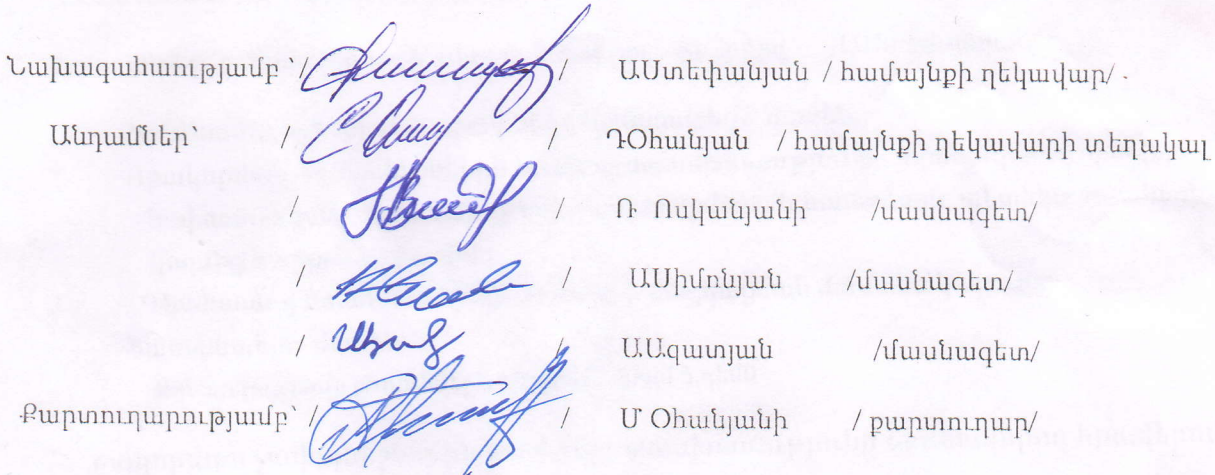 Նախագահությամբ՝ / / ԱՍտեփանյան / համայնքի ղեկավար/
Անդամներ՝ / / ԴՕհանյան / համայնքի ղեկավարի տեղակալ
/ / Ռ Ոսկանյանի /մասնագետ/
/ / ԱՍիմոնյան /մասնագետ/
/ / ԱԱզատյան /մասնագետ/
Քարտուղարությամբ՝ / / Մ Օհանյանի / քարտուղար/